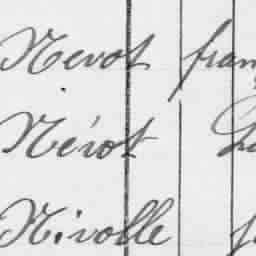 Nevot fran
Nérot
Nivolle